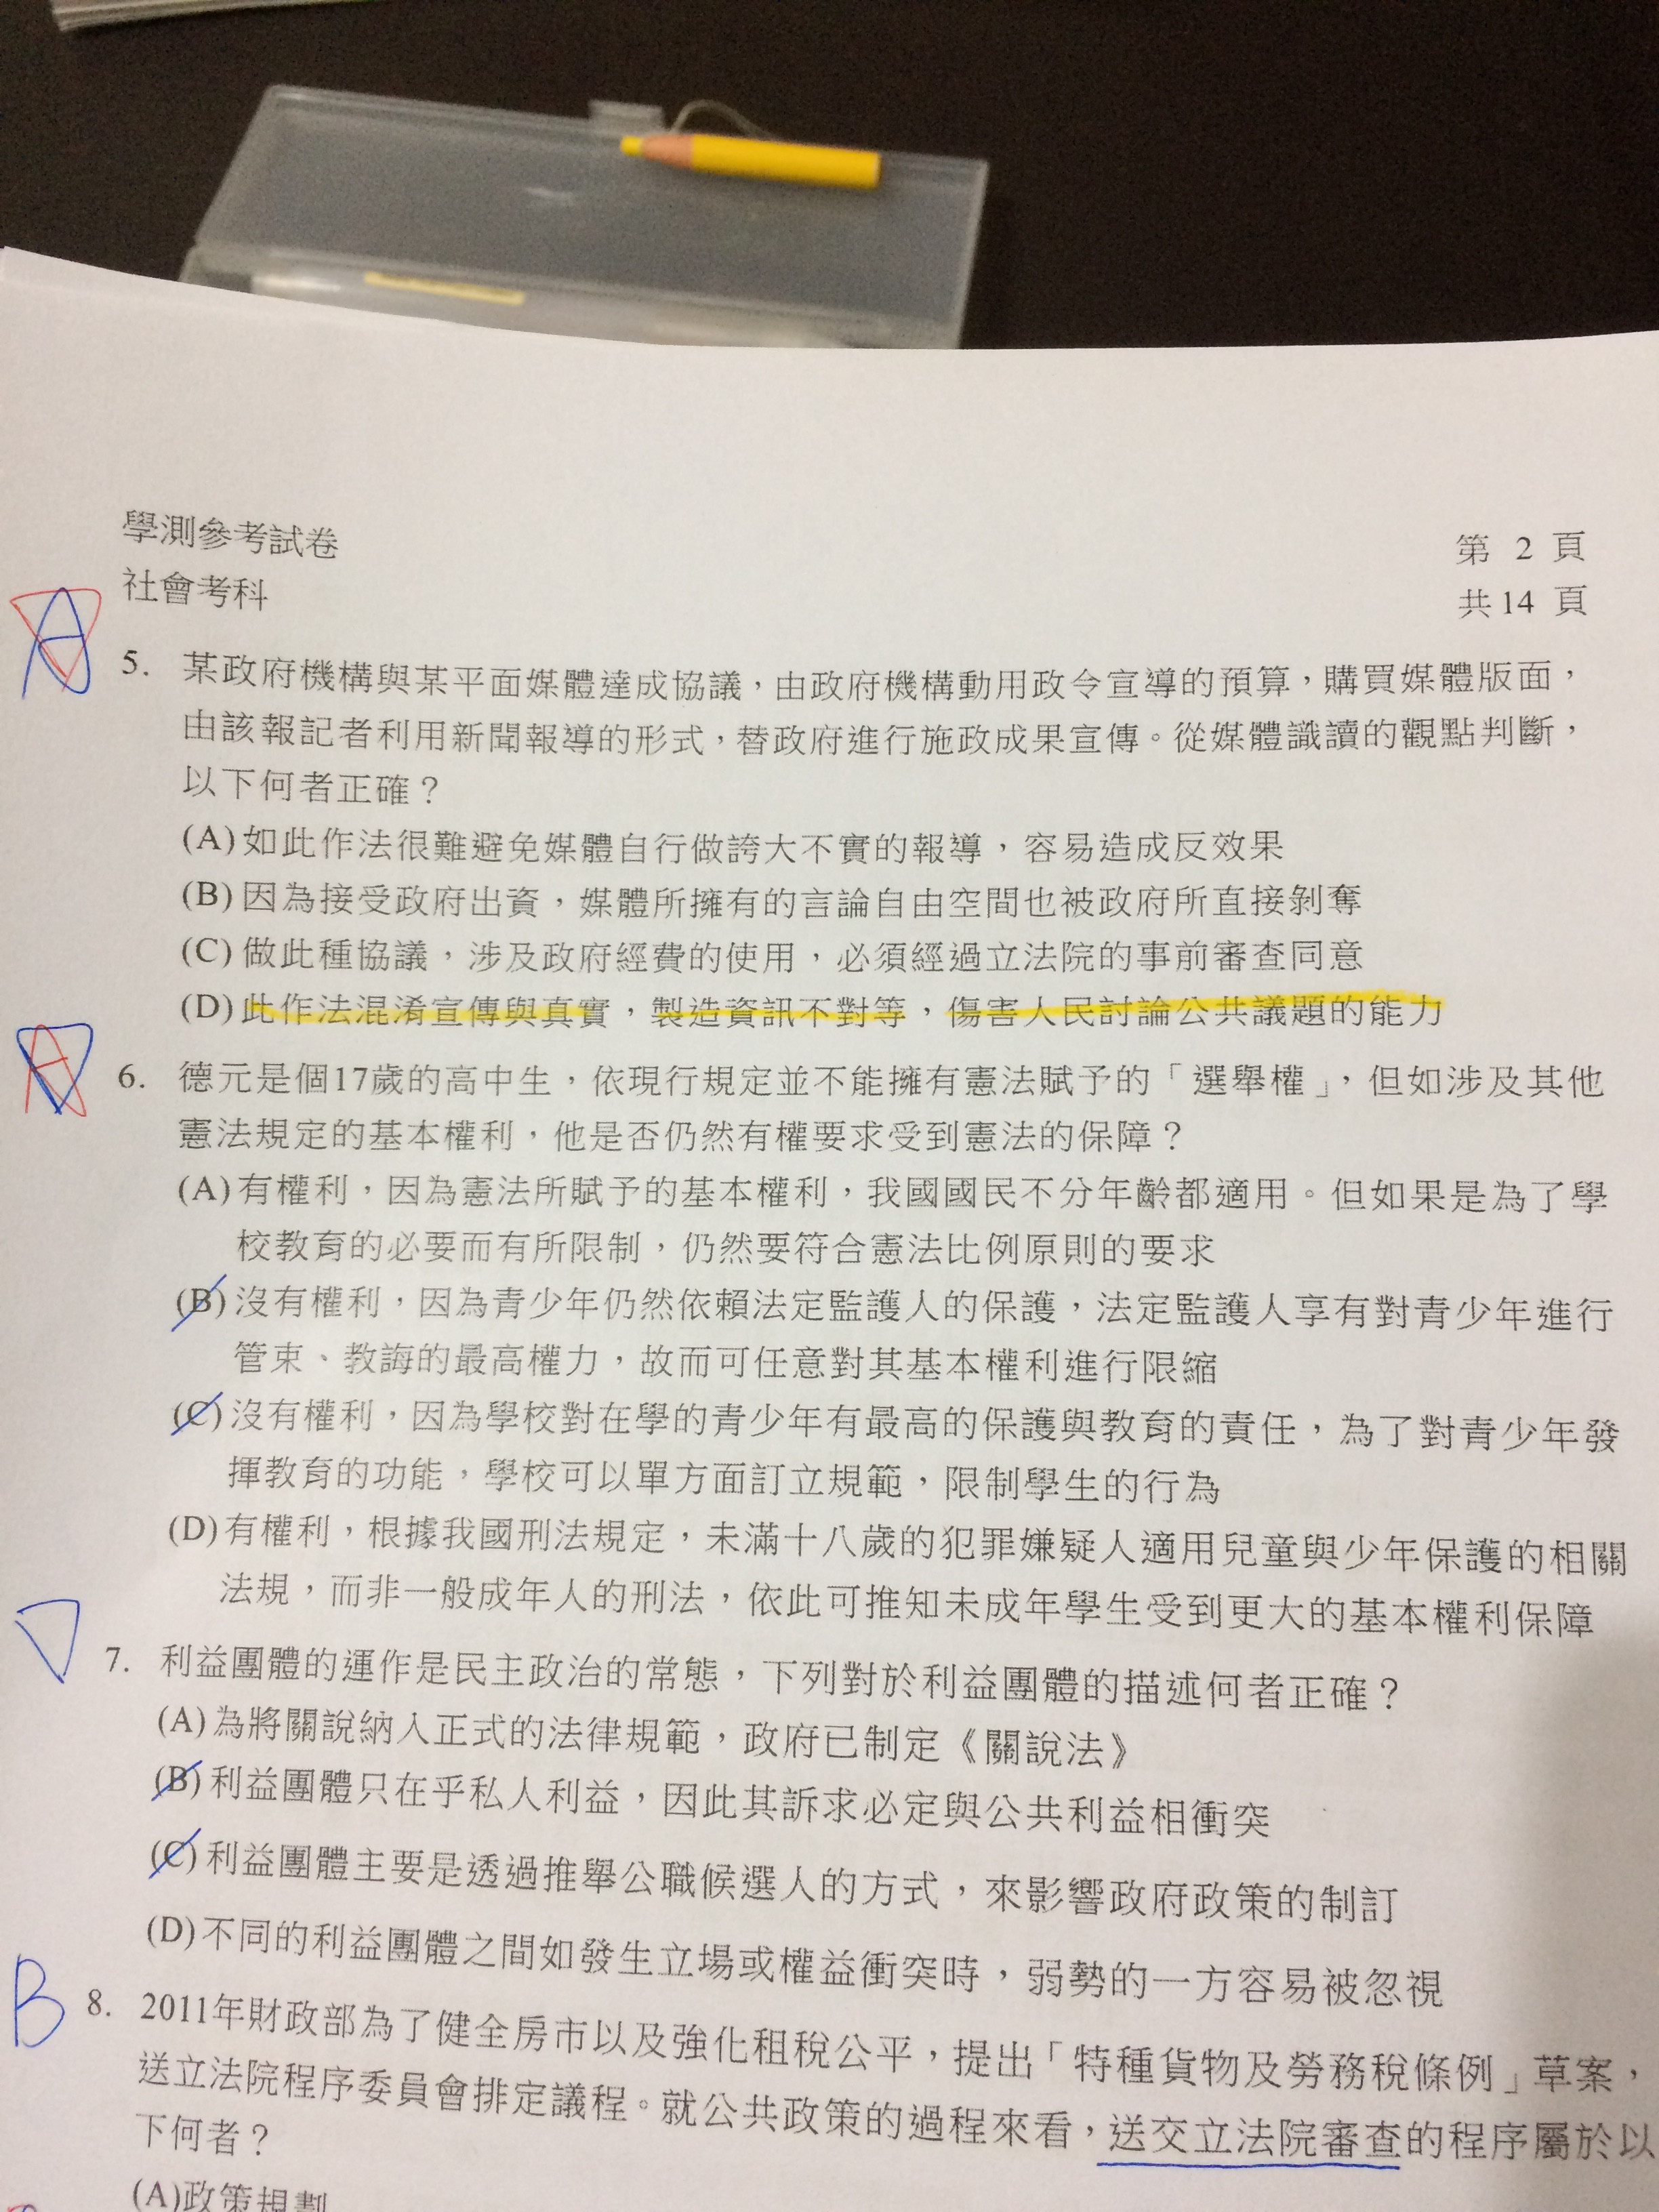 學測參考試卷
社會考科
第 2 頁
共14 頁
A
5. 某政府機構與某平面媒體達成協議，由政府機構動用政令宣導的預算，購買媒體版面，
由該報記者利用新聞報導的形式，替政府進行施政成果宣傳。從媒體識讀的觀點判斷，
以下何者正確？
(A)如此作法很難避免媒體自行做誇大不實的報導，容易造成反效果
(B)因為接受政府出資，媒體所擁有的言論自由空間也被政府所直接剝奪
(C)做此種協議，涉及政府經費的使用，必須經過立法院的事前審查同意
(D)此作法混淆宣傳與真實，製造資訊不對等，傷害人民討論公共議題的能力
A
6. 德元是個17歲的高中生，依現行規定並不能擁有憲法賦予的「選舉權」，但如涉及其他
憲法規定的基本權利，他是否仍然有權要求受到憲法的保障？
(A)有權利，因為憲法所賦予的基本權利，我國國民不分年齡都適用。但如果是為了學
校教育的必要而有所限制，仍然要符合憲法比例原則的要求
(B)沒有權利，因為青少年仍然依賴法定監護人的保護，法定監護人享有對青少年進行
管束、教誨的最高權力，故而可任意對其基本權利進行限縮
(C)沒有權利，因為學校對在學的青少年有最高的保護與教育的責任，為了對青少年發
揮教育的功能，學校可以單方面訂立規範，限制學生的行為
(D)有權利，根據我國刑法規定，未滿十八歲的犯罪嫌疑人適用兒童與少年保護的相關
法規，而非一般成年人的刑法，依此可推知未成年學生受到更大的基本權利保障
D
7. 利益團體的運作是民主政治的常態，下列對於利益團體的描述何者正確？
(A)為將關說納入正式的法律規範，政府已制定《關說法》
(B)利益團體只在乎私人利益，因此其訴求必定與公共利益相衝突
(C)利益團體主要是透過推舉公職候選人的方式，來影響政府政策的制訂
(D)不同的利益團體之間如發生立場或權益衝突時，弱勢的一方容易被忽視
B
8. 2011年財政部為了健全房市以及強化租稅公平，提出「特種貨物及勞務稅條例」草案，
送立法院程序委員會排定議程。就公共政策的過程來看，送交立法院審查的程序屬於以
下何者？
(A)政策規劃